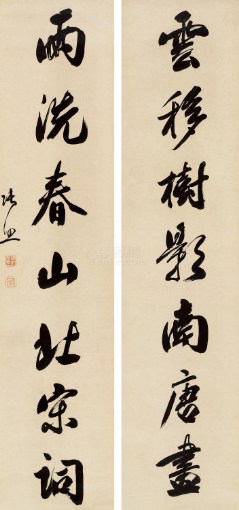 雲移樹影南唐畫
雨洗春山北宋詞
張照